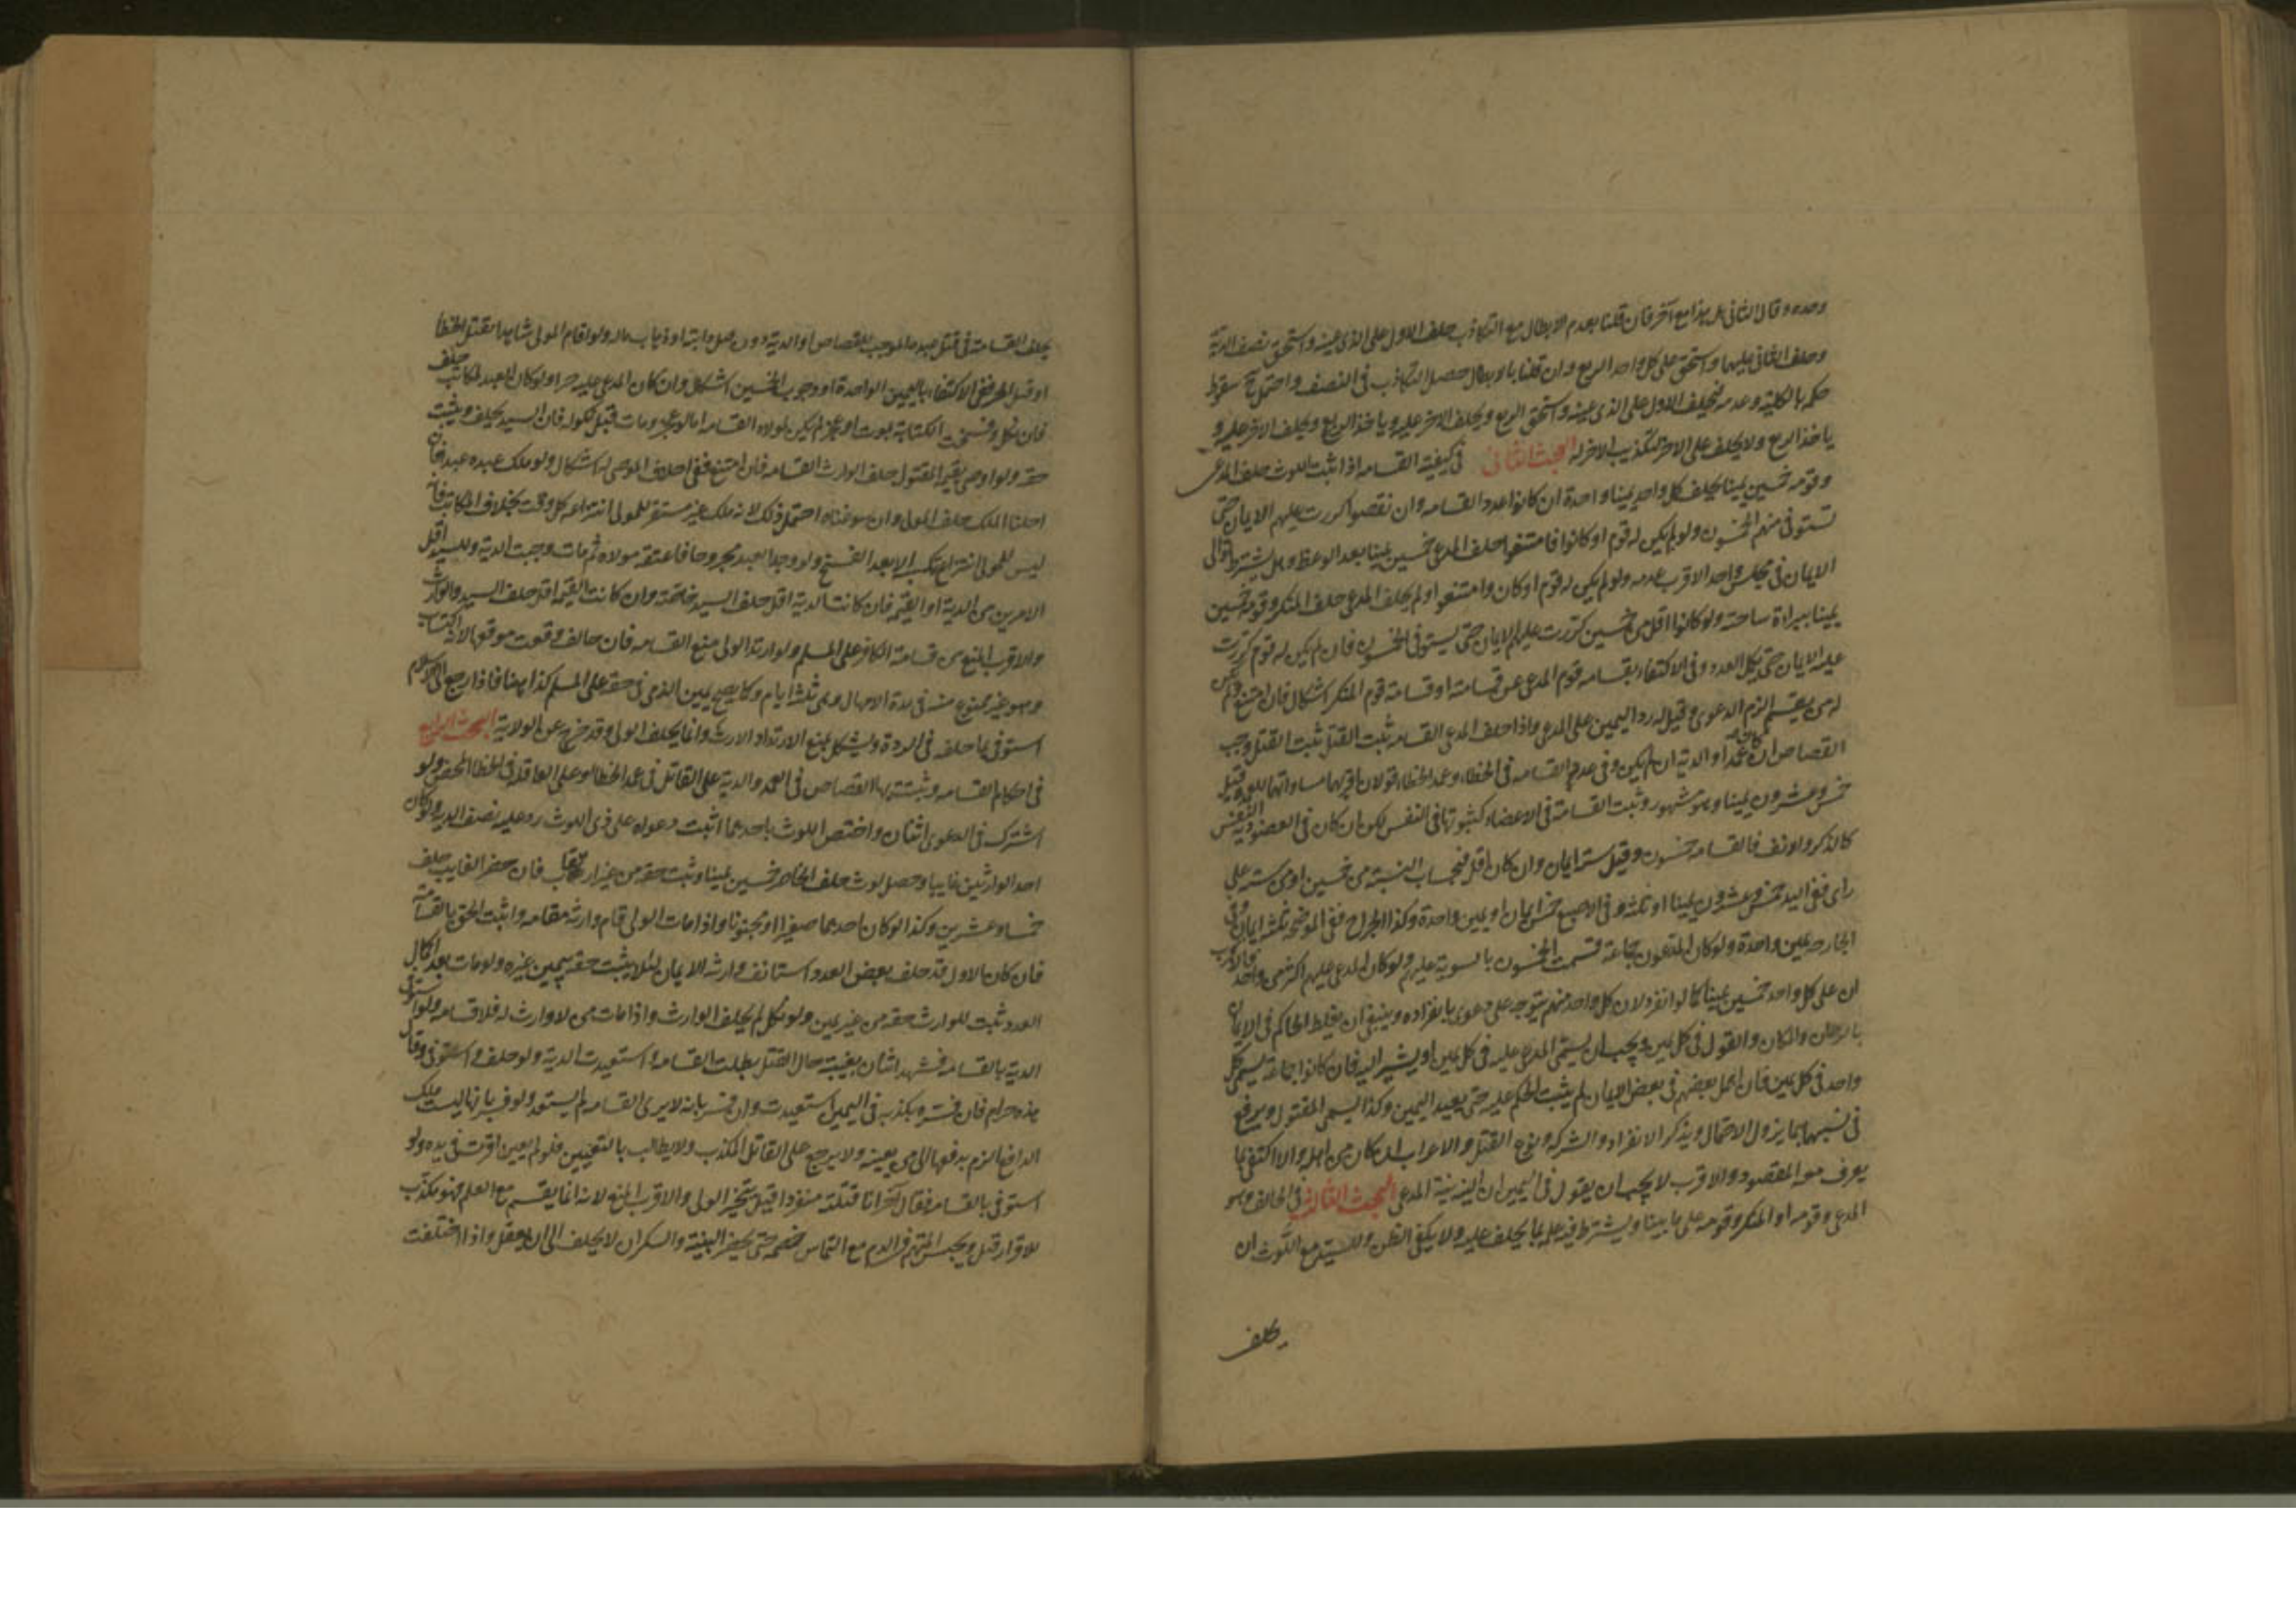 وحده وقال الثاني بل هذا مع آخر فان قلنا بعدم الابطال مع التكاذب حلف الاول على الذي عينه واستحق نصف الدية
وحلف الثاني عليهما واستحق على كل واحد الربع وان قلنا بالابطال حصل التكاذب في النصف واحتمل ح سقوط
حكمه بالكلية وعدمه فيحلف الاول على الذي عينه واستحق الربع ويحلف الاخر عليه وياخذ الربع ويحلف الاخر عليه و
ياخذ الربع ولا يحلف على الاخر لتكذيب الاخر له البحث الثاني في كيفية القسامه اذا ثبت اللوث حلف المدعي
وقومه خمسين يمينا يحلف كل واحد يمينا واحدة ان كانوا عدد القسامه وان نقصوا كررت عليهم الايمان حتى
تستوفى منهم الخمسون ولو لم يكن له قوم او كانوا فامتنعوا حلف المدعي خمسين يمينا بعد الوعظ وهل يشترط توالي
الايمان في مجلس واحد الاقرب عدمه ولو لم يكن له قوم او كان وامتنعوا ولم يحلف المدعي حلف المنكر وقومه خمسين
يمينا ببراءة ساحته ولو كانوا اقل من خمسين كررت عليهم الايمان حتى يستوفى الخمسون فان لم يكن له قوم كررت
عليه الايمان حتى يكمل العدد وفي الاكتفاء بقسامه قوم المدعي عن قسامته او قسامة قوم المنكر اشكال فان امتنع ولم يكن
له من يقسم الزم الدعوى وقيل له رد اليمين على المدعي واذا حلف المدعي القسامه ثبت القتل ثبت القتل وجب
القصاص ان كان عمدا والدية ان لم يكن وفي عدد القسامه في الخطاء وعمد الخطاء قولان اقربهما مساواتهما للعمد وقيل
خمس وعشرون يمينا وهو مشهور وثبت القسامة في الاعضاء كثبوتها في النفس لكن ان كان في العضو دية النفس
كالذكر والانف فالقسامه خمسون وقيل ستة ايمان وان كان اقل فبحساب النسبة من خمسين او من ستة على
راى ففي اليد خمس وعشرون يمينا او ثلثه وفي الاصبع خمس ايمان او يمين واحدة وكذا الجراح ففي الموضحه ثلثه ايمان وفي
الحارصه يمين واحدة ولو كان المدعون جماعة قسمت الخمسون بالسوية عليهم ولو كان المدعى عليهم اكثر من واحد فالاقرب
ان على كل واحد خمسين يمينا كما لو انفرد لان كل واحد منهم يتوجه عليه دعوى بانفراده وينبغي ان يغلظ الحاكم في الايمان
بالزمان والمكان والقول في كل يمين ويجب ان يسمي المدعى عليه في كل يمين او يشير اليه فان كانوا جماعة يسمى كل
واحد في كل يمين فان اهمل بعضهم في بعض الايمان لم يثبت الحكم عليه حتى يعيد اليمين وكذا يسمي المقتول ويرفع
في نسبهما بما يزول الاحتمال ويذكر الانفراد والشركه ونوع القتل والاعراب ان كان من اهله والا اكتفي بما
يعرف معه المقصود والاقرب لا يجب ان يقول في اليمين ان النية نية المدعي البحث الثالث في الحالف وهو
المدعي وقومه او المنكر وقومه على ما بينا ويشترط فيه علمه بما يحلف عليه ولا يكفي الظن وللسيد مع اللوث ان
يحلف
يحلف القسامة في قتل عبده الموجب للقصاص او الدية دون قتل دابته او ذهاب ماله ولو اقام المولى شاهدا بقتل الخطأ
او قتل الحر ففي الاكتفاء باليمين الواحدة او وجوب الخمسين اشكال وان كان المدعى عليه حرا ولو كان العبد لمكاتب حلف
فان نكل وفسخت الكتابة بموت او عجز لم يكن لمولاه القسامه اما لو عجز ومات قبل نكوله فان السيد يحلف ويثبت
حقه ولو اوصى بقيمة المقتول حلف الوارث القسامه فان امتنع ففي احلاف الموصى له اشكال ولو ملك عبده عبدا فان
احلنا الملك حلف المولى وان سوغناه احتمل ذلك لانه ملك غير مستقر للمولى انتزاعه كل وقت بخلاف المكاتب فانه
ليس للمولى انتزاع مكسبه الا بعد الفسخ ولو وجد العبد مجروحا فاعتقه مولاه ثم مات وجبت الدية وللسيد اقل
الامرين من الدية او القيمة فان كانت الدية اقل حلف السيد خاصة وان كانت القيمة اقل حلف السيد والوارث
والاقرب المنع من قسامة الكافر على المسلم ولو ارتد الولي منع القسامه فان حالف وقعت موقعها لانه اكتساب
وهو غير ممنوع منه في مدة الامهال وهي ثلثة ايام وكما يصح يمين الذمي في حقه على المسلم كذا هنا فاذا رجع الى الاسلام
استوفى بما حلفه في الردة ويشكل بمنع الارتداد الارث وانما يحلف الولي وقد خرج عن الولاية البحث الرابع
في احكام القسامه ويثبت بها القصاص في العمد والدية على القاتل في عمد الخطأ وعلى العاقله في الخطا المحض ولو
اشترك في الدعوى اثنان واختص اللوث باحدهما اثبت دعواه على ذي اللوث رد عليه نصف الديه ولو كان
احد الوارثين غايبا وحصل لوث حلف الحاضر خمسين يمينا وثبت حقه من غير ارتقاب فان حضر الغايب حلف
خمسا وعشرين وكذا لو كان احدهما صغيرا او مجنونا واذا مات الولي قام وارثه مقامه واثبت الحق بالقسامة
فان كان الاول قد حلف بعض العدد استانف وارثه الايمان لئلا يثبت حقه بيمين غيره ولو مات بعد اكمال
العدد ثبت للوارث حقه من غير يمين ولو نكل لم يحلف الوارث واذا مات من لا وارث له فلا قسامه ولو استوفى
الدية بالقسامه فشهد اثنان بغيبته حال القتل بطلت القسامه واستعيدت الدية ولو حلف واستوفى وقال
هذه حرام فان فسره بكذبه في اليمين استعيدت وان فسر بانه لا يرى القسامه لم يستعد ولو فسر بانها ليست ملك
الدافع الزم بدفعها الى من يعينه ولا يرجع على القاتل المكذب ولا يطالب بالتعيين فلو لم يعين اقرت في يده ولو
استوفى بالقسامه فقال آخر انا قتلته منفردا قيل يتخير الولي والاقرب المنع لانه انما يقسم مع العلم فهو مكذب
للاقرار قيل ويحبس المتهم في الدم مع التماس خصمه حتى يحضر البينة والسكران لا يحلف الى ان يعقل واذا اختلفت